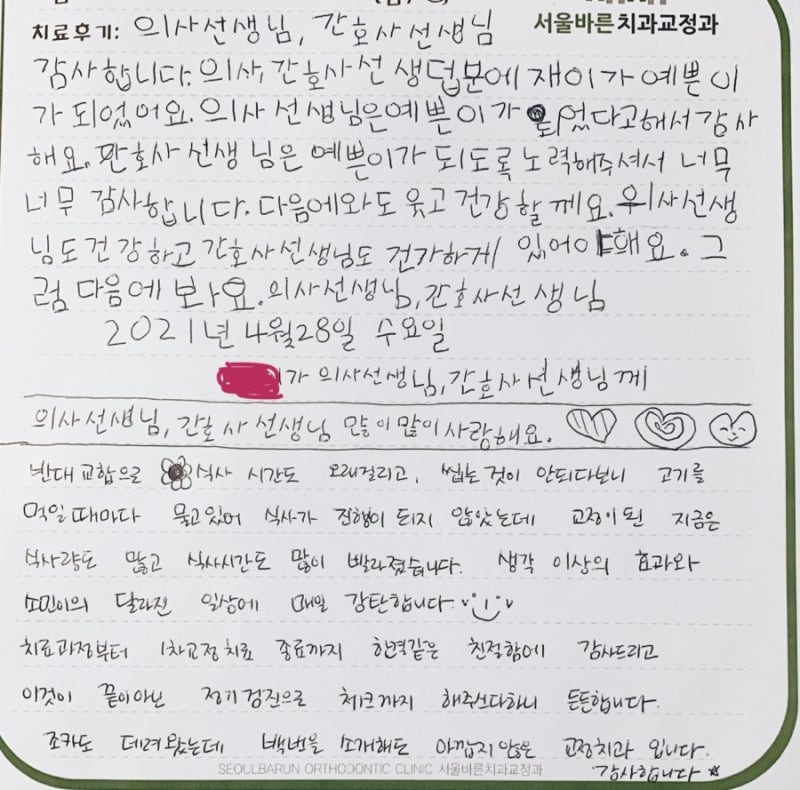 치료후기: 의사선생님, 간호사선생님
서울바른치과교정과
감사합니다. 의사, 간호사선생덥분에 재이가 예쁜이
가 되었어요. 의사선생님은예쁜이가 되었다고해서감사
해요. 간호사선생님은 예쁜이가 되도록 노력해주셔서 너무
너무 감사합니다. 다음에와도 웃고건강할께요. 의사선생
님도건강하고 간호사선생님도 건가하게 있어야해요. 그
럼다음에 봐요. 의사선생님, 간호사선생님
2021년 4월28일 수요일
가 의사선생님, 간호사선생님께
의사선생님, 간호사선생님 많이많이사랑해요.
반대교합으로 식사 시간도 오래걸리고, 씹는것이 안되다보니 고기를
먹일때마다 물고있어 식사가 진행이 되지 않았는데 교정이된 지금은
식사량도 많고 식사시간도 많이 빨라졌습니다. 생각 이상의 효과와
달라진 일상에 매일 감탄합니다
치료과정부터 1차교정치료 종료까지 한결같은 친절함에 감사드리고
이것이 끝이아닌 정기검진으로 체크까지 해주신다하니 든든합니다.
조카도 데려왔는데 백번을 소개해도 아깝지않은 교정치과 입니다.
감사합니다
SEOULBARUN ORTHODONTIC CLINIC 서울바른치과교정과